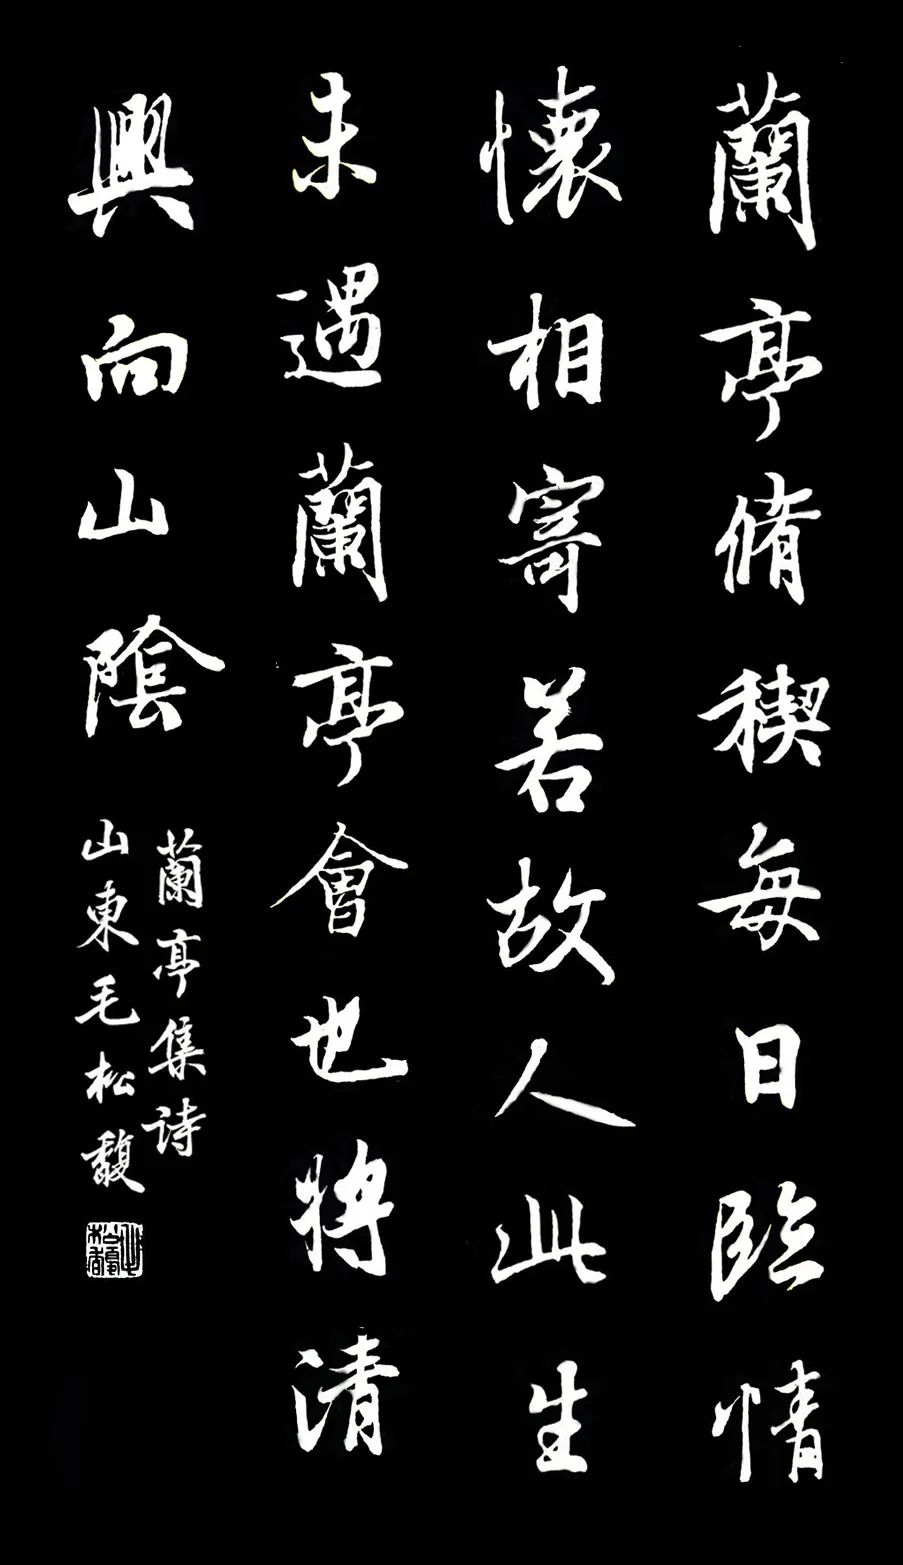 蘭亭脩稧每日臨情
懷相寄若故人此生
未遇蘭亭會也將清
興向山陰
蘭亭集詩
山東毛松馥